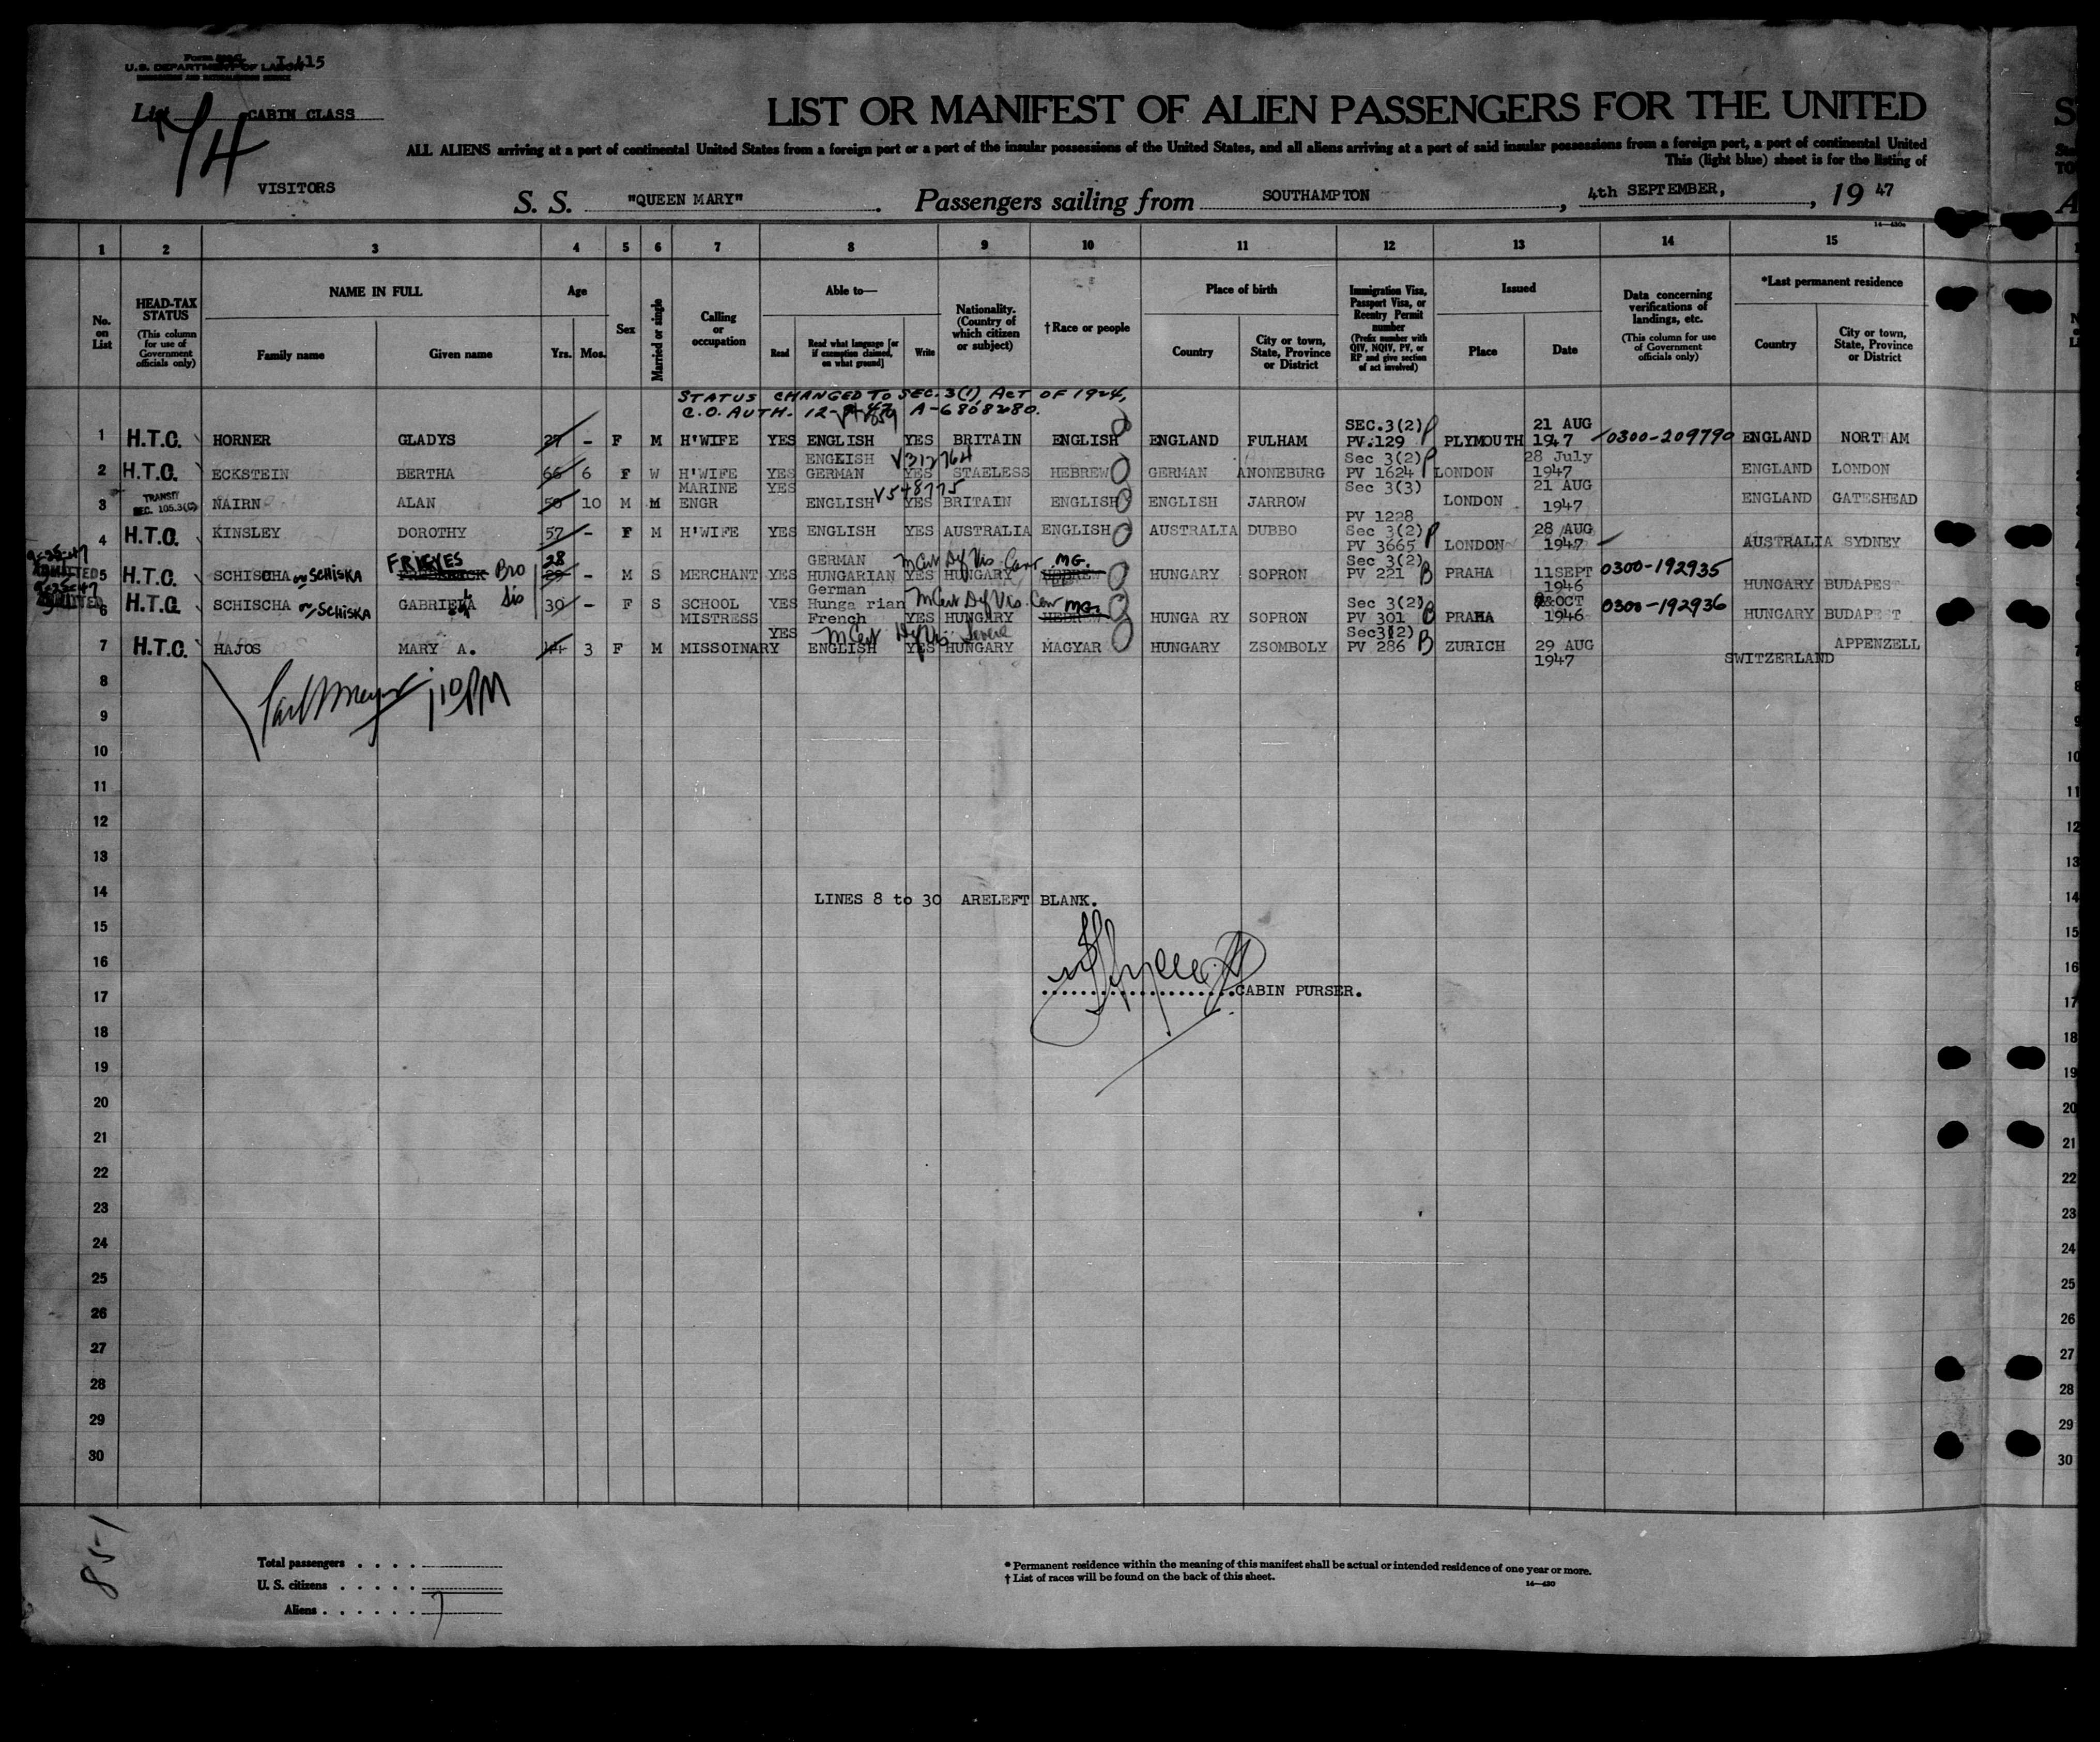 I-415
U.S. DEPARTMENT OF LABOR
IMMIGRATION AND NATURALIZATION SERVICE
List CABIN CLASS
74
VISITORS
LIST OR MANIFEST OF ALIEN PASSENGERS FOR THE UNITED
ALL ALIENS arriving at a port of continental United States from a foreign port or a port of the insular possessions of the United States, and all aliens arriving at a port of said insular possessions from a foreign port, a port of continental United
This (light blue) sheet is for the listing of
S. S. "QUEEN MARY". Passengers sailing from SOUTHAMPTON, 4th SEPTEMBER, 19 47
14—430
1 2 3 4 5 6 7 8 9 10 11 12 13 14 15
No. on List
HEAD-TAX STATUS (This column for use of Government officials only)
NAME IN FULL
Family name Given name
Age
Yrs. Mos.
Sex
Married or single
Calling or occupation
Able to—
Read Read what language [or if exemption claimed, on what ground] Write
Nationality. (Country of which citizen or subject)
†Race or people
Place of birth
Country City or town, State, Province or District
Immigration Visa, Passport Visa, or Reentry Permit number (Prefix number with QIV, NQIV, PV, or RP and give section of act involved)
Issued
Place Date
Data concerning verifications of landings, etc. (This column for use of Government officials only)
*Last permanent residence
Country City or town, State, Province or District
STATUS CHANGED TO SEC. 3(1), ACT OF 1924,
C.O. AUTH. A-6808280.
1 H.T.C. HORNER GLADYS 27 - F M H'WIFE YES ENGLISH YES BRITAIN ENGLISH ENGLAND FULHAM SEC.3(2) PV.129 PLYMOUTH 21 AUG 1947 0300-209790 ENGLAND NORTHAM
2 H.T.C. ECKSTEIN BERTHA 66 6 F W H'WIFE YES ENGKISH GERMAN V312764 YES STAELESS HEBREW GERMAN ANONEBURG Sec 3(2) PV 1624 LONDON 28 July 1947 ENGLAND LONDON
3 TRANSIT SEC. 105.3(C) NAIRN ALAN 50 10 M M MARINE ENGR YES ENGLISH V548775 YES BRITAIN ENGLISH ENGLISH JARROW Sec 3(3) PV 1228 LONDON 21 AUG 1947 ENGLAND GATESHEAD
4 H.T.C. KINSLEY DOROTHY 57 - F M H'WIFE YES ENGLISH YES AUSTRALIA ENGLISH AUSTRALIA DUBBO Sec 3(2) PV 3665 LONDON 28 AUG 1947 AUSTRALIA SYDNEY
9-25-47 ADMITTED
5 H.T.C. SCHISCHA or SCHISKA FRIGYES Bro 28 - M S MERCHANT YES GERMAN HUNGARIAN YES HUNGARY MG. HUNGARY SOPRON Sec 3(2) PV 221 B PRAHA 11SEPT 1946 0300-192935 HUNGARY BUDAPEST
9-25-47 ADMITTED
6 H.T.C. SCHISCHA or SCHISKA GABRIELA Sis 30 - F S SCHOOL MISTRESS YES German Hunga rian French YES HUNGARY MG. HUNGA RY SOPRON Sec 3(2) PV 301 B PRAHA OCT 1946 0300-192936 HUNGARY BUDAPEST
7 H.T.C. HAJOS MARY A. 44 3 F M MISSOINARY YES ENGLISH YES HUNGARY MAGYAR HUNGARY ZSOMBOLY Sec3(2) PV 286 B ZURICH 29 AUG 1947 SWITZERLAND APPENZELL
8
9
10
11
12
13
14 LINES 8 to 30 ARELEFT BLANK.
15
16
17 CABIN PURSER.
18
19
20
21
22
23
24
25
26
27
28
29
30
85-1
Total passengers
U. S. citizens
Aliens 7
* Permanent residence within the meaning of this manifest shall be actual or intended residence of one year or more.
† List of races will be found on the back of this sheet.
14—430